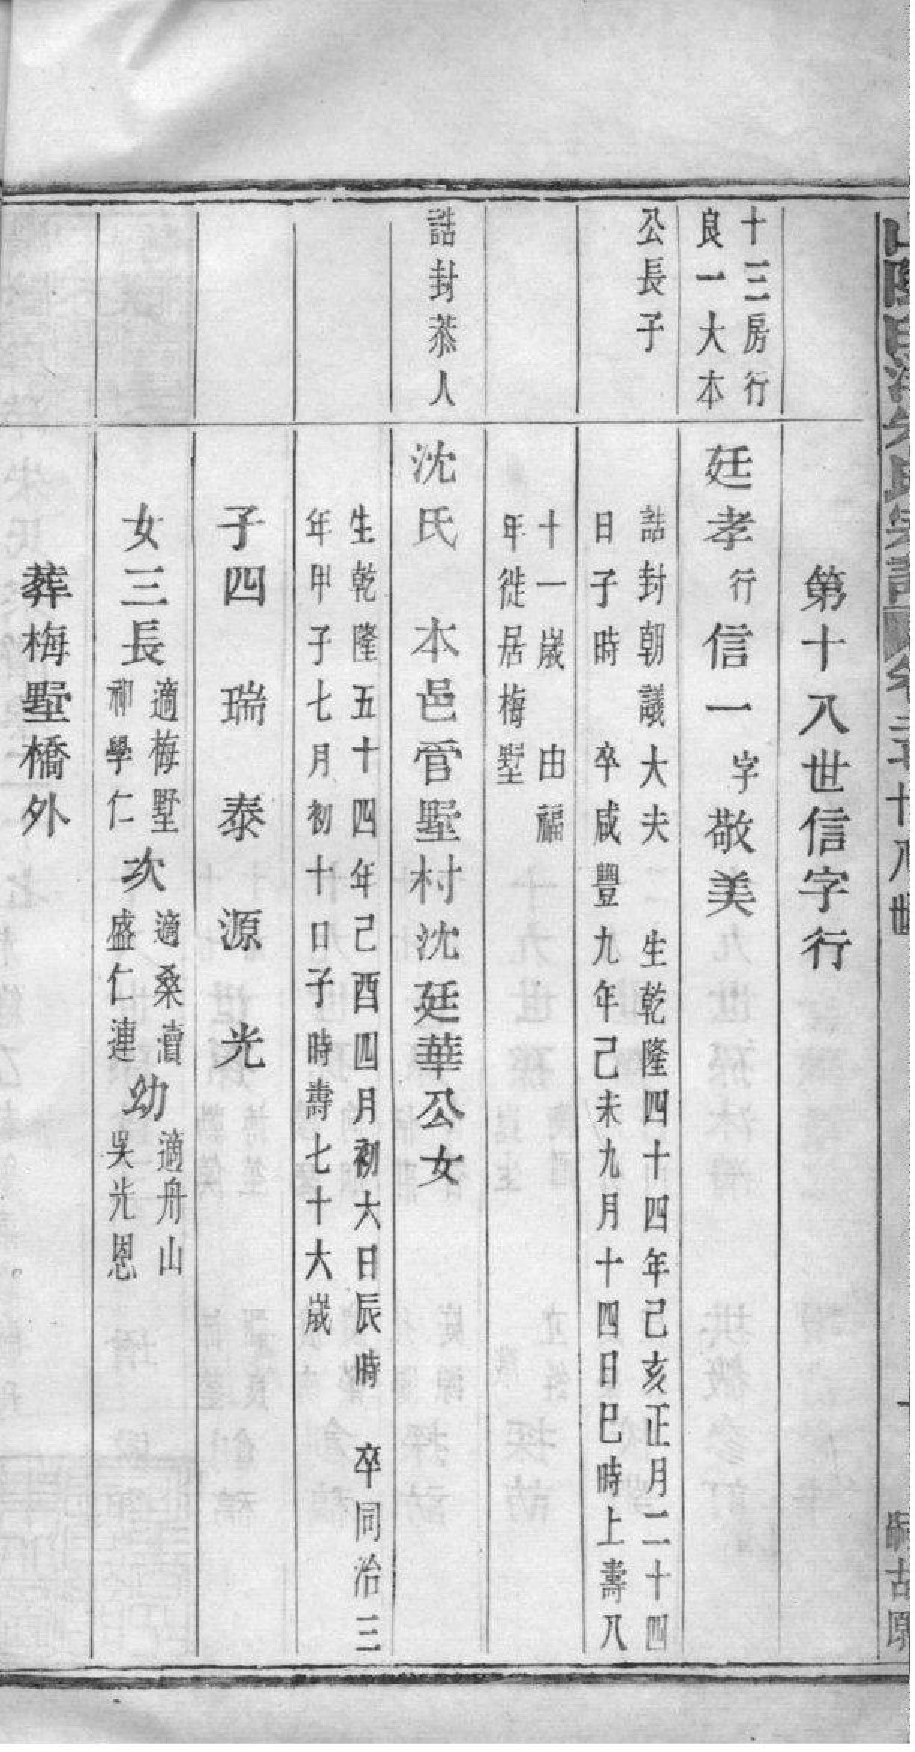 第十八世信字行
十三房行
良一大本
廷孝行信一字敬美
公長子
誥封朝議大夫 生乾隆四十四年己亥正月二十四
日子時 卒咸豐九年己未九月十四日巳時上壽八
十一歲 由福
年徙居梅墅
誥封恭人
沈氏 本邑管墅村沈廷華公女
生乾隆五十四年己酉四月初六日辰時 卒同治三
年甲子七月初十日子時壽七十六歲
子四 瑞 泰 源 光
女三長適梅墅
柳學仁次適桑瀆
盛仁連幼適舟山
吳光恩
葬梅墅橋外